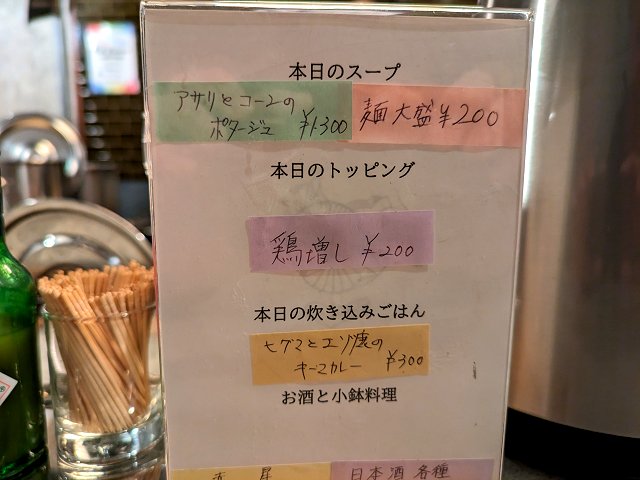 本日のスープ
アサリとコーンの
ポタージュ ¥1300
麺大盛¥200
本日のトッピング
鶏増し ¥200
本日の炊き込みごはん
ヒグマとエゾ鹿の
キーマカレー ¥300
お酒と小鉢料理
日本酒 各種